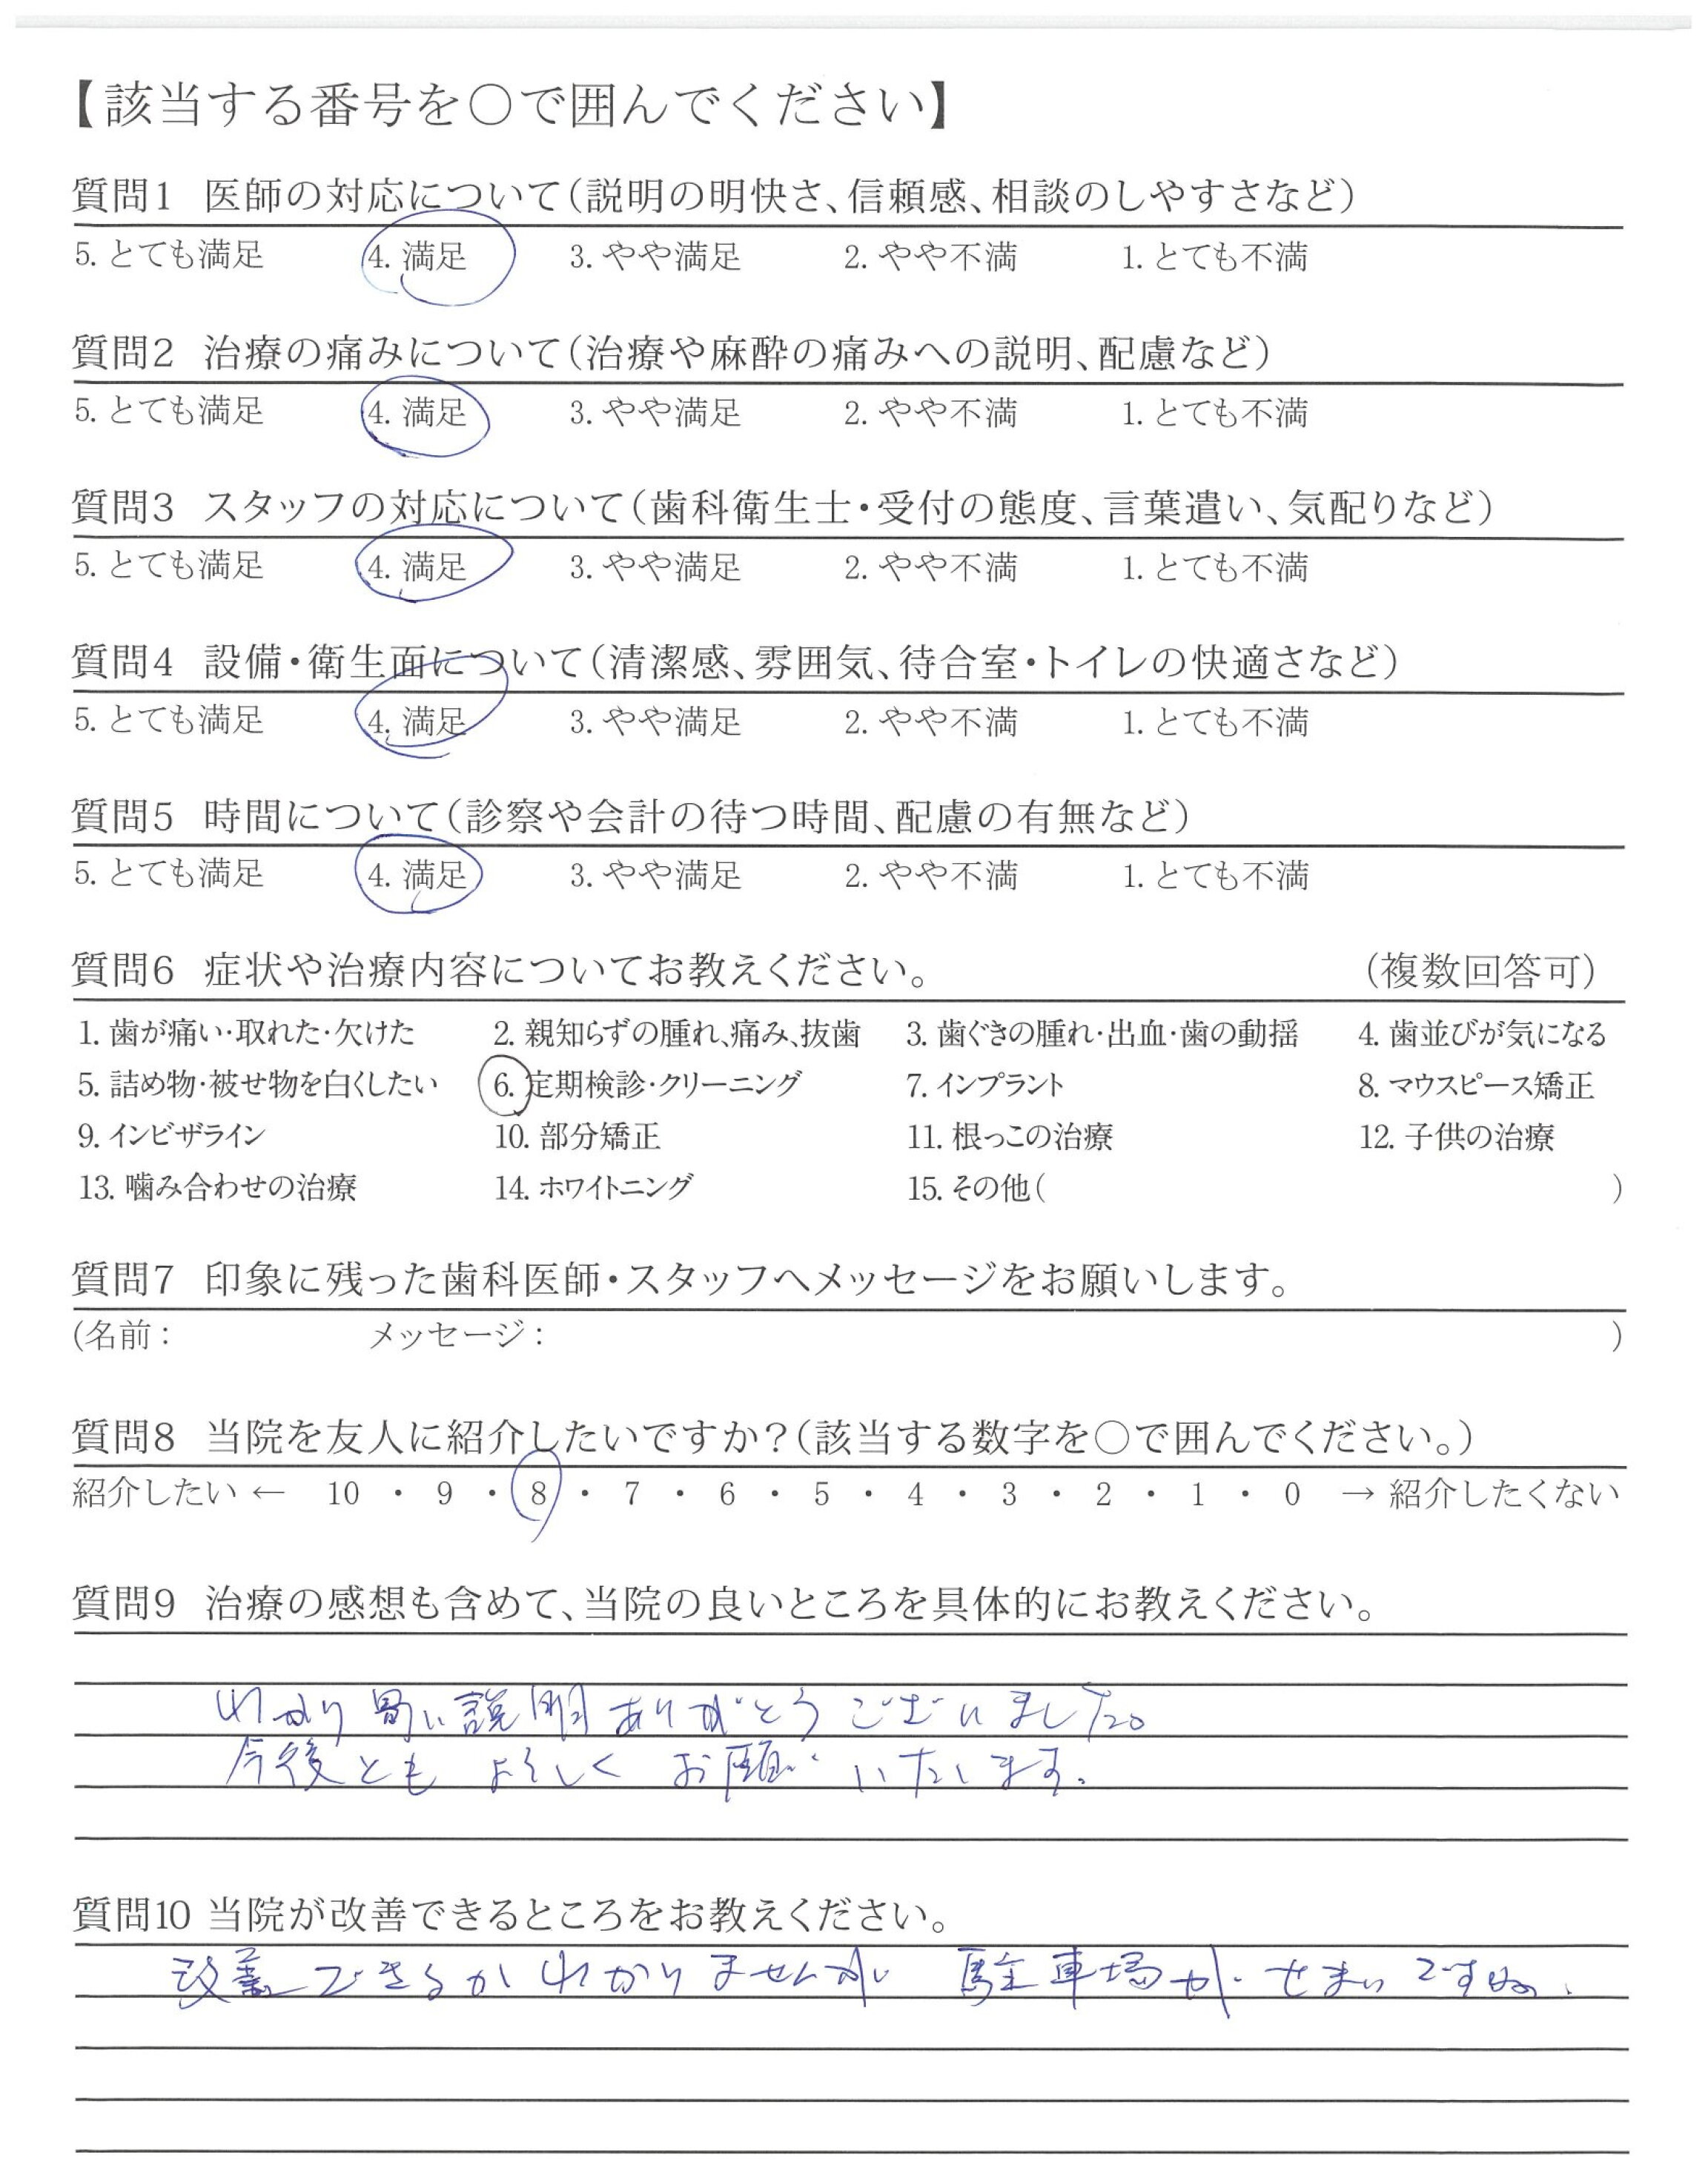 【該当する番号を○で囲んでください】
質問1 医師の対応について(説明の明快さ、信頼感、相談のしやすさなど)
5. とても満足 4. 満足 3. やや満足 2. やや不満 1. とても不満
質問2 治療の痛みについて(治療や麻酔の痛みへの説明、配慮など)
5. とても満足 4. 満足 3. やや満足 2. やや不満 1. とても不満
質問3 スタッフの対応について(歯科衛生士・受付の態度、言葉遣い、気配りなど)
5. とても満足 4. 満足 3. やや満足 2. やや不満 1. とても不満
質問4 設備・衛生面について(清潔感、雰囲気、待合室・トイレの快適さなど)
5. とても満足 4. 満足 3. やや満足 2. やや不満 1. とても不満
質問5 時間について(診察や会計の待つ時間、配慮の有無など)
5. とても満足 4. 満足 3. やや満足 2. やや不満 1. とても不満
質問6 症状や治療内容についてお教えください。 (複数回答可)
1. 歯が痛い・取れた・欠けた 2. 親知らずの腫れ、痛み、抜歯 3. 歯ぐきの腫れ・出血・歯の動揺 4. 歯並びが気になる
5. 詰め物・被せ物を白くしたい 6. 定期検診・クリーニング 7. インプラント 8. マウスピース矯正
9. インビザライン 10. 部分矯正 11. 根っこの治療 12. 子供の治療
13. 噛み合わせの治療 14. ホワイトニング 15. その他( )
質問7 印象に残った歯科医師・スタッフへメッセージをお願いします。
(名前: メッセージ: )
質問8 当院を友人に紹介したいですか?(該当する数字を○で囲んでください。)
紹介したい ← 10 ・ 9 ・ 8 ・ 7 ・ 6 ・ 5 ・ 4 ・ 3 ・ 2 ・ 1 ・ 0 → 紹介したくない
質問9 治療の感想も含めて、当院の良いところを具体的にお教えください。
わかり易い説明ありがとうございました。
今後ともよろしくお願いいたします。
質問10 当院が改善できるところをお教えください。
改善できるかわかりませんが 駐車場が せまいですね。